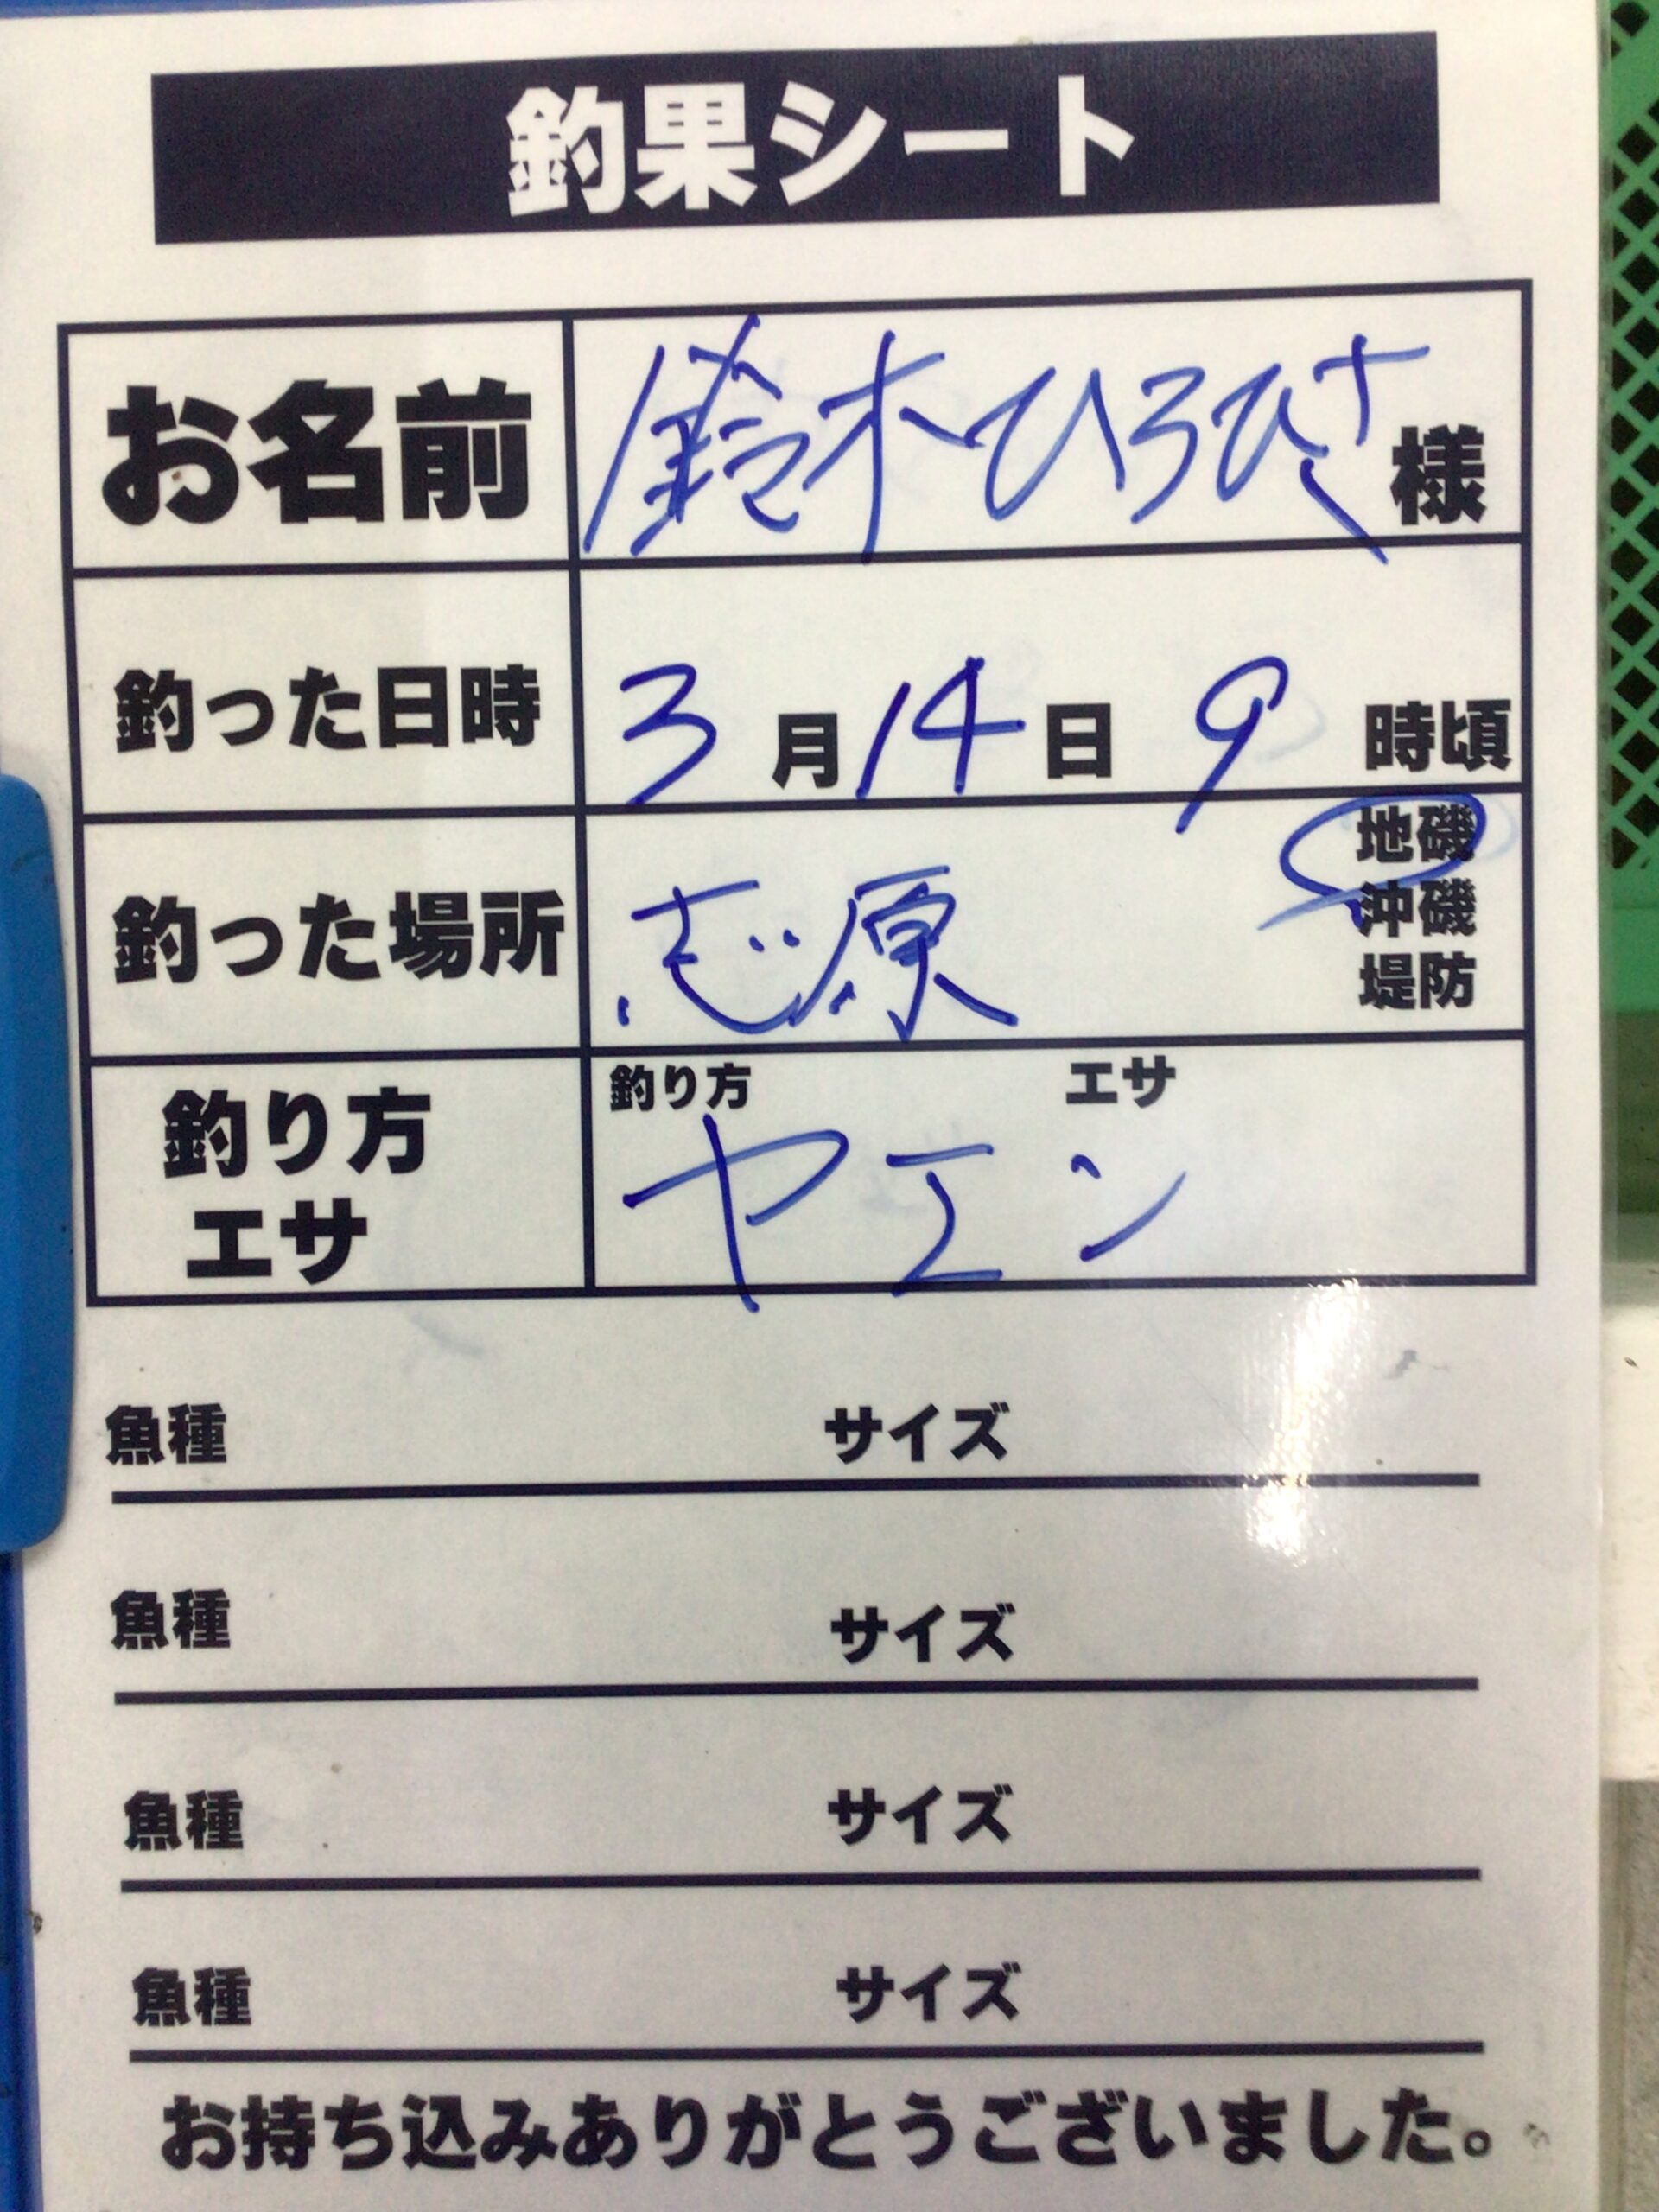 釣果シート
お名前 鈴木ひろひさ 様
釣った日時 3月14日 9時頃
釣った場所 志原 地磯
沖磯
堤防
釣り方 エサ 釣り方 エサ
ヤエン
魚種 サイズ
魚種 サイズ
魚種 サイズ
魚種 サイズ
お持ち込みありがとうございました。